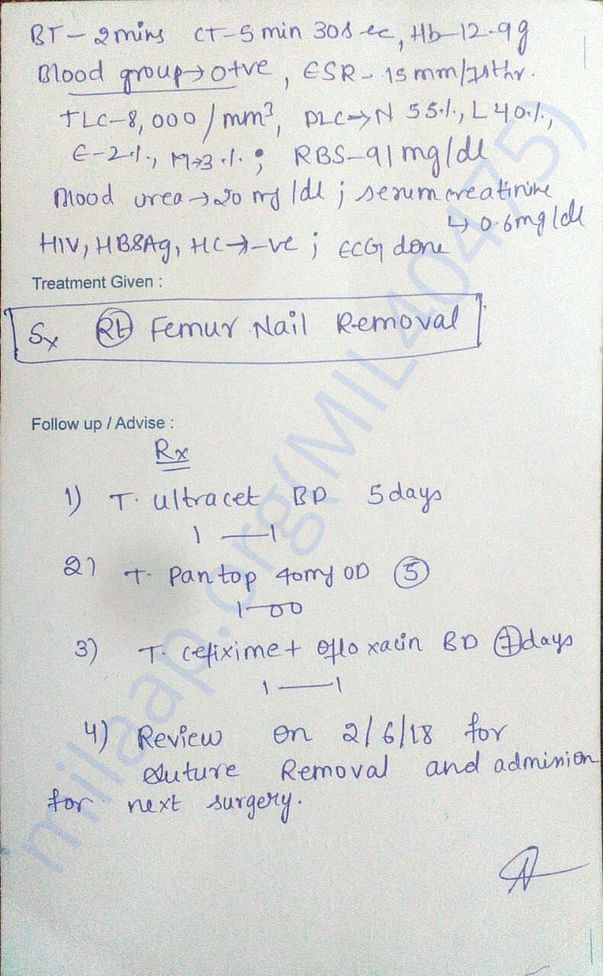 BT- 2mins CT-5 min 30sec, Hb-12.9g
Blood group→O+ve, ESR- 15mm/1sthr.
TLC-8,000/mm³, DLC→N 55%, L40%,
E-2%, M→3%; RBS-91mg/dl
Blood urea→20 mg/dl ; serum creatinine
↳ 0.6mg/dl
HIV, HBSAg, HC→-ve ; ECG done
Treatment Given :
Sx Rt Femur Nail Removal
Follow up / Advise :
Rx
1) T. Ultracet BD 5days
1 — 1
2) T. Pantop 40mg OD 5
1-00
3) T. cefixime + ofloxacin BD 7days
1 — 1
4) Review on 2/6/18 for
suture Removal and admission
for next surgery.
milaap.org(MIL40475)